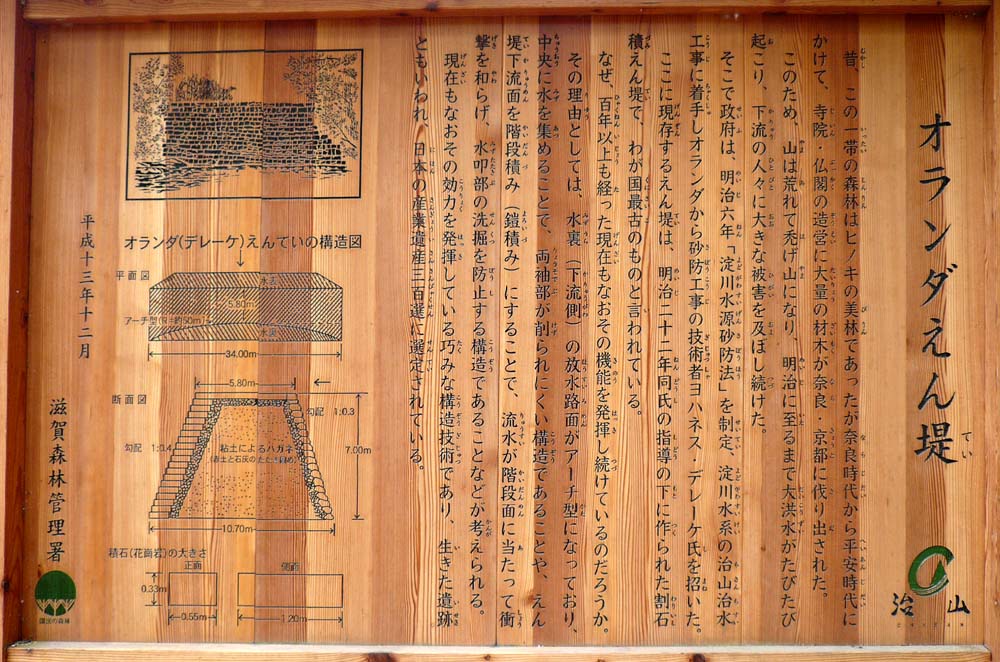 オランダえん堤
昔、この一帯の森林はヒノキの美林であったが奈良時代から平安時代に
かけて、寺院・仏閣の造営に大量の材木が奈良・京都に伐り出された。
このため、山は荒れて禿げ山になり、明治に至るまで大洪水がたびたび
起こり、下流の人々に大きな被害を及ぼし続けた。
そこで政府は、明治六年「淀川水源砂防法」を制定、淀川水系の治山治水
工事に着手しオランダから砂防工事の技術者ヨハネス・デレーケ氏を招いた。
ここに現存するえん堤は、明治二十二年同氏の指導の下に作られた割石
積えん堤で、わが国最古のものと言われている。
なぜ、百年以上も経った現在もなおその機能を発揮し続けているのだろうか。
その理由としては、水裏(下流側)の放水路面がアーチ型になっており、
中央に水を集めることで、両袖部が削られにくい構造であることや、えん
堤下流面を階段積み(鎧積み)にすることで、流水が階段面に当たって衝
撃を和らげ、水叩部の洗掘を防止する構造であることなどが考えられる。
現在もなおその効力を発揮している巧みな構造技術であり、生きた遺跡
ともいわれ、日本の産業遺産三百選に選定されている。
治山
オランダ(デレーケ)えんていの構造図
平面図
水表
5.80m
アーチ型(R=約50m)
水裏
34.00m
断面図
5.80m
勾配 1:0.3
勾配 1:0.4
粘土によるハガネ
7.00m
10.70m
積石(花崗岩)の大きさ
正面
側面
0.33m
0.55m
1.20m
平成十三年十二月
滋賀森林管理署
国民の森林